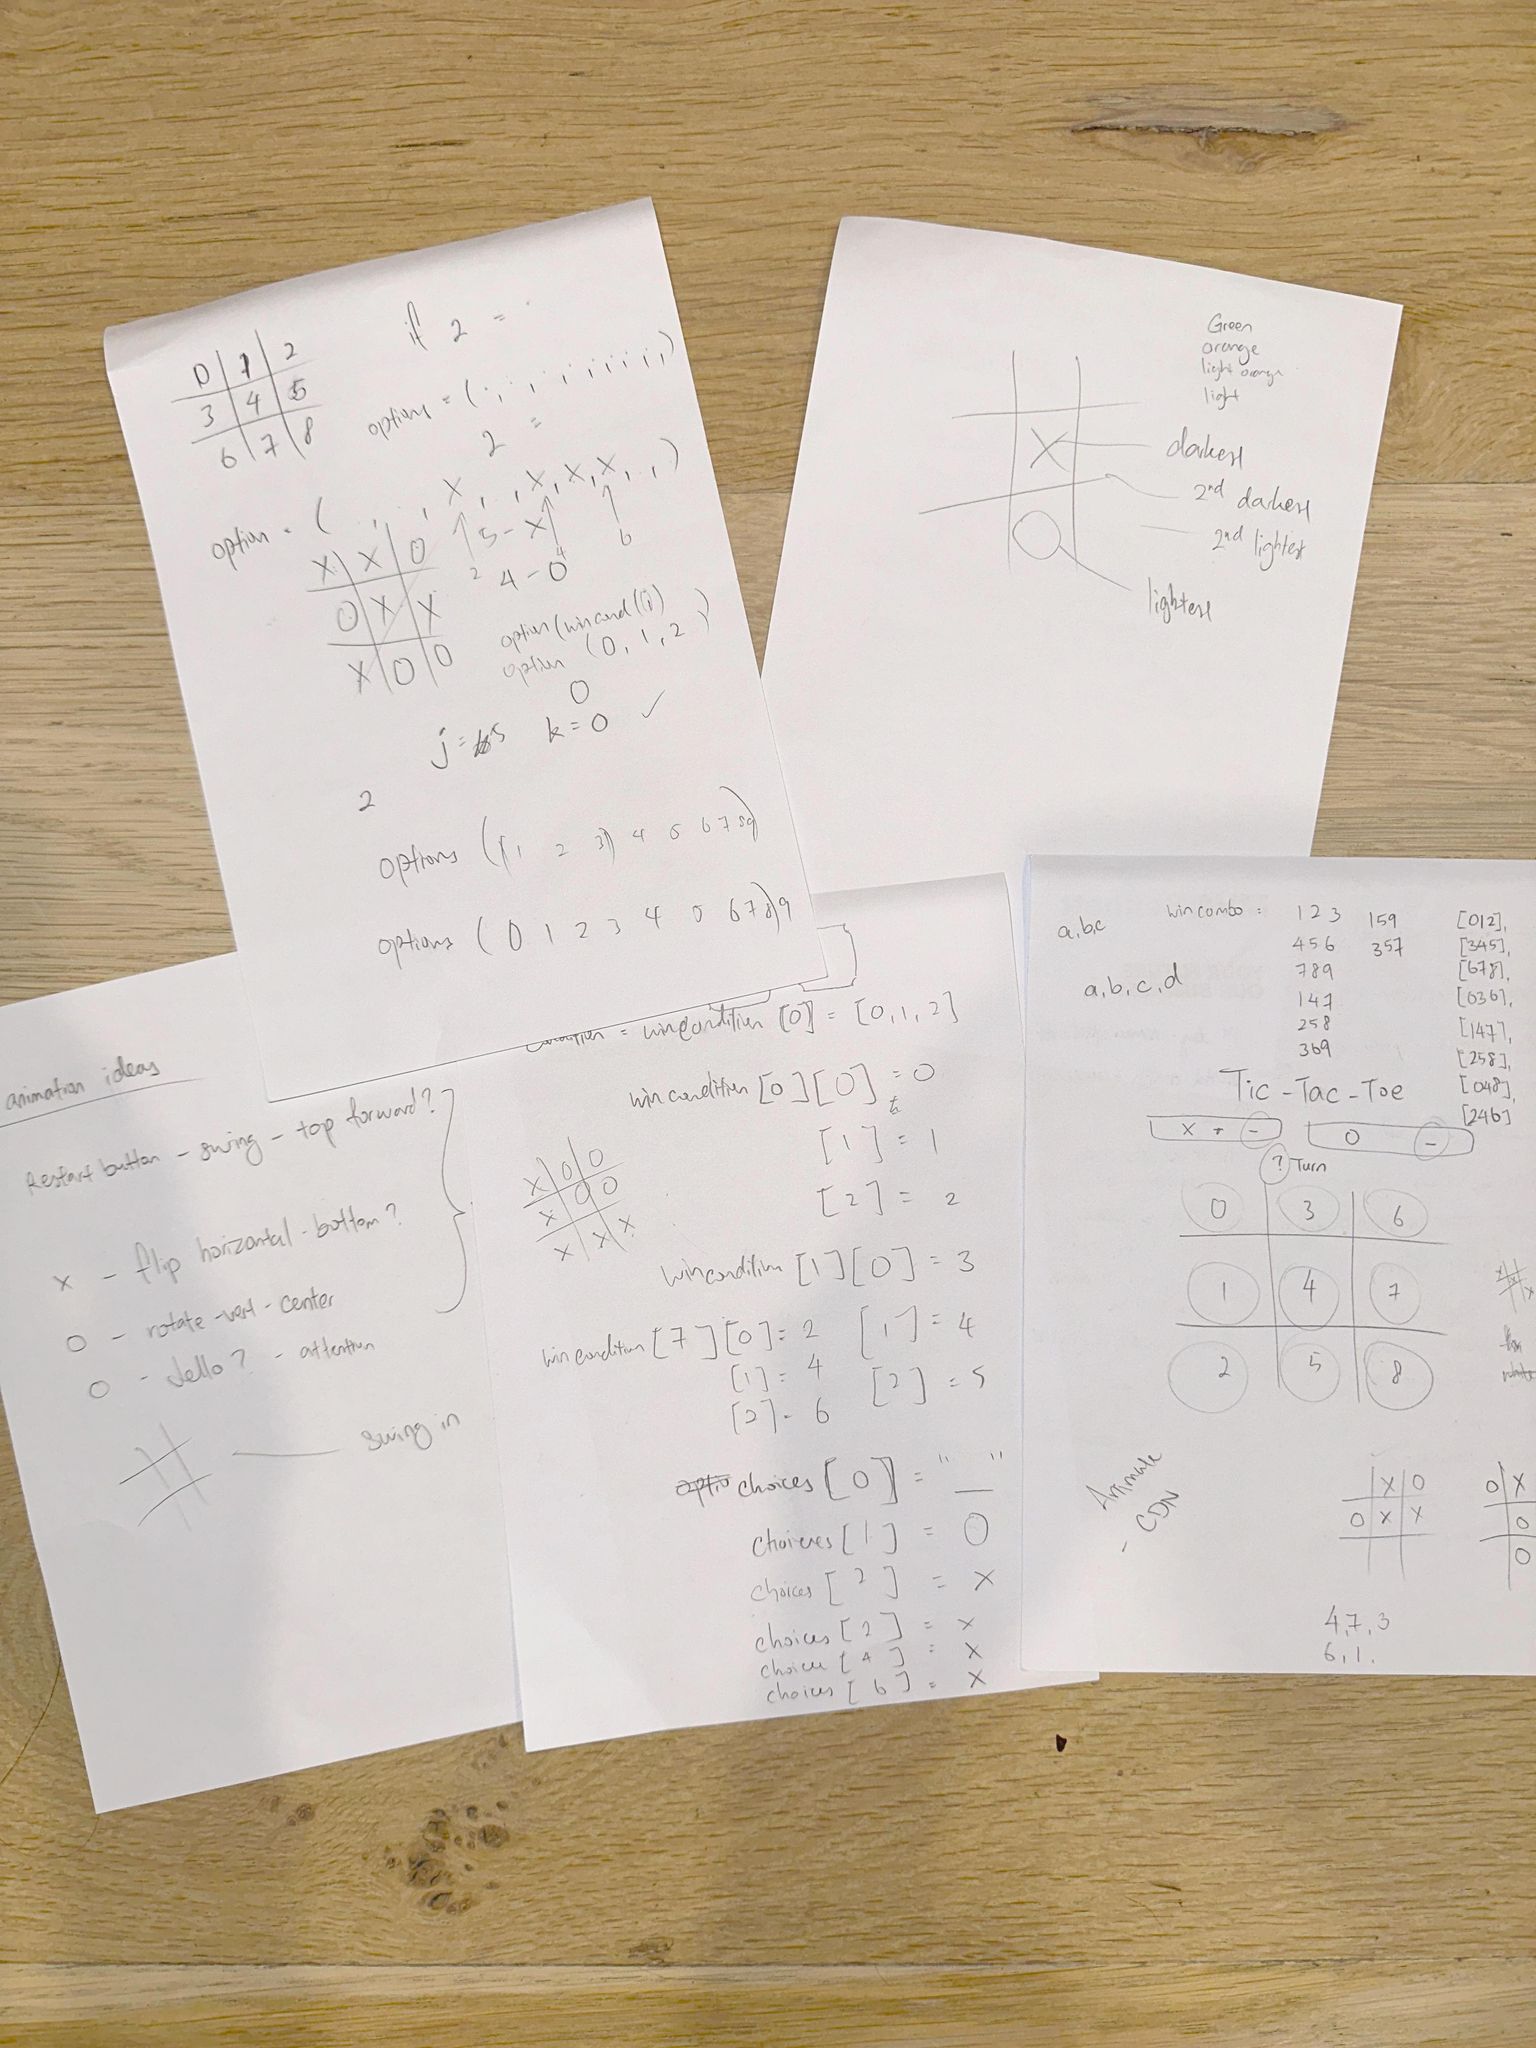 0 1 2
3 4 5
6 7 8
if 2 =
options = ( , , , , , , , , )
2 =
option = ( , , , X, , , X, X, X, , , )
2 5 - X 6
4 - 0
X X O
O X X
X O O
option (wincond (i)
option (0, 1, 2)
0
j = 5 k = 0 ✓
2
options ((1 2 3) 4 5 6 7 8 9)
options (0 1 2 3 4 5 6 7 8) 9
Green
orange
light orange
light
X
darkest
2nd darkest
2nd lightest
O
lightest
animation ideas
Restart button - swing - top forward?
X - flip horizontal - bottom?
O - rotate - vert - center
O - Jello? - attention
swing in
condition = wincondition [0] = [0, 1, 2]
wincondition [0][0] = 0
[1] = 1
[2] = 2
X O O
X O O
X X X
wincondition [1][0] = 3
[1] = 4
[2] = 5
wincondition [7][0] = 2
[1] = 4
[2] = 6
choices [0] = "__"
choices [1] = O
choices [2] = X
choices [2] = X
choice [4] = X
choices [6] = X
a,b,c
a, b, c, d
wincombo =
1 2 3 159
4 5 6 357
789
147
258
369
[012],
[345],
[678],
[036],
[147],
[258],
[048],
[246]
Tic - Tac - Toe
X = -
O -
? Turn
0 3 6
1 4 7
2 5 8
Animate
- CDN
X O
O X X
O X
O
O
4, 7, 3
6, 1.